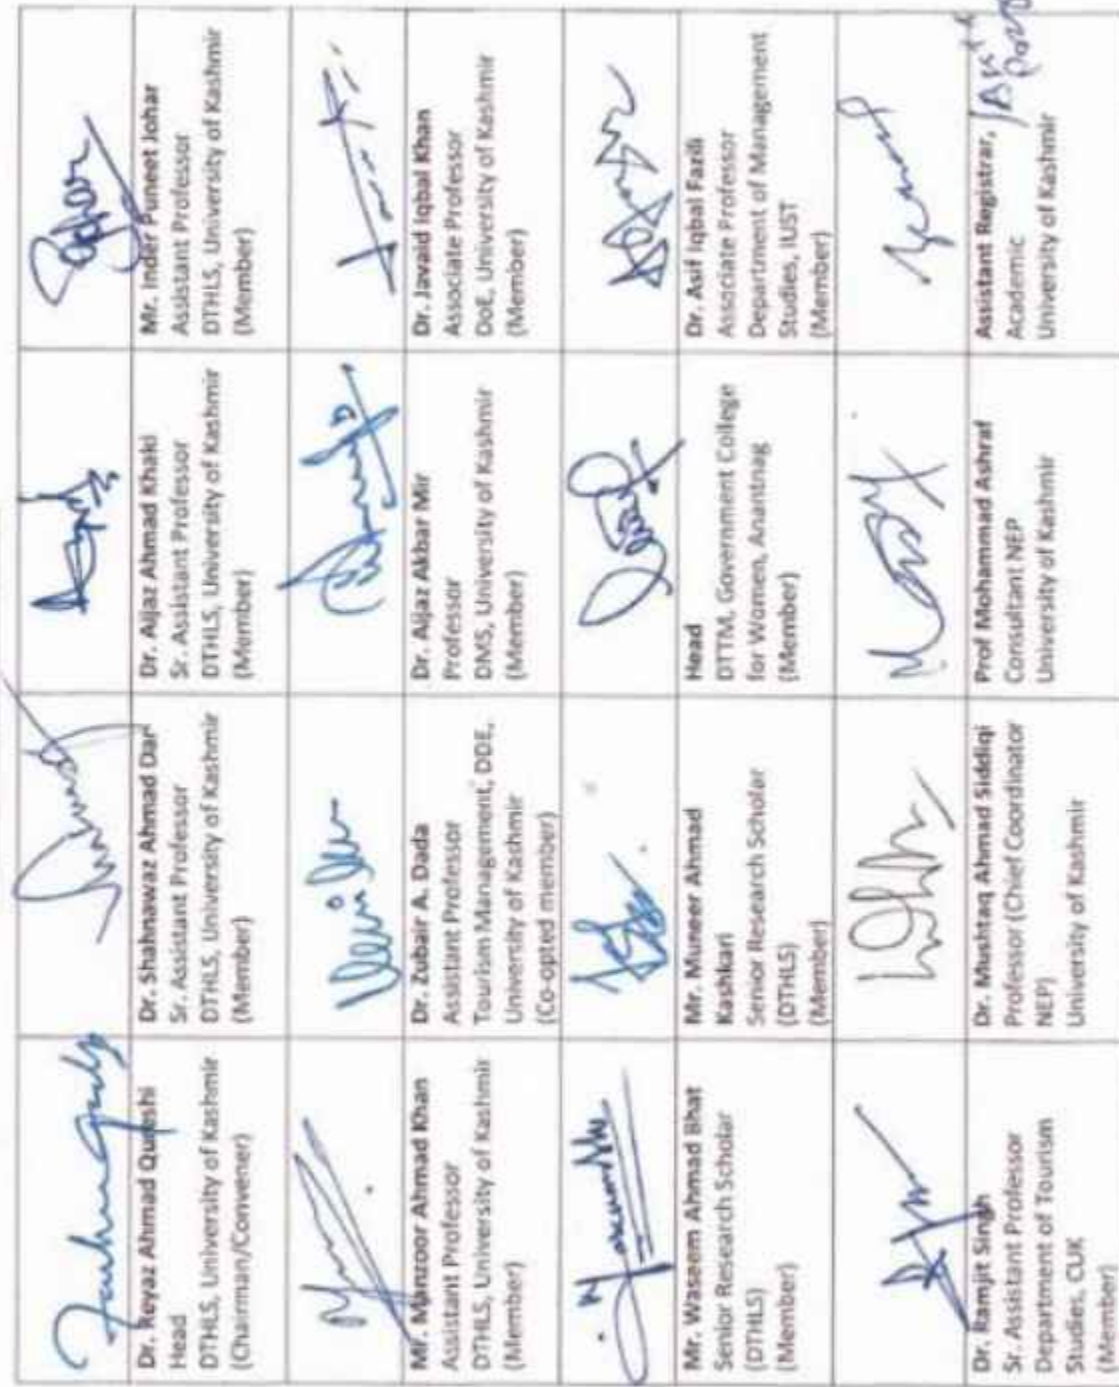 Dr. Reyaz Ahmad Qureshi
Head
DTHLS, University of Kashmir
(Chairman/Convener)
Dr. Shahnawaz Ahmad Dar
Sr. Assistant Professor
DTHLS, University of Kashmir
(Member)
Dr. Aijaz Ahmad Khaki
Sr. Assistant Professor
DTHLS, University of Kashmir
(Member)
Mr. Inder Puneet Johar
Assistant Professor
DTHLS, University of Kashmir
(Member)
Mr. Manzoor Ahmad Khan
Assistant Professor
DTHLS, University of Kashmir
(Member)
Dr. Zubair A. Dada
Assistant Professor
Tourism Management, DDE,
University of Kashmir
(Co-opted member)
Dr. Aijaz Akbar Mir
Professor
DMS, University of Kashmir
(Member)
Dr. Javaid Iqbal Khan
Associate Professor
DoE, University of Kashmir
(Member)
Mr. Waseem Ahmad Bhat
Senior Research Scholar
(DTHLS)
(Member)
Mr. Muneer Ahmad
Kashkari
Senior Research Scholar
(DTHLS)
(Member)
Head
DTTM, Government College
for Women, Anantnag
(Member)
Dr. Asif Iqbal Fazili
Associate Professor
Department of Management
Studies, IUST
(Member)
Dr. Ramjit Singh
Sr. Assistant Professor
Department of Tourism
Studies, CUK
(Member)
Dr. Mushtaq Ahmad Siddiqi
Professor (Chief Coordinator
NEP)
University of Kashmir
Prof Mohammad Ashraf
Consultant NEP
University of Kashmir
Assistant Registrar,
Academic
University of Kashmir